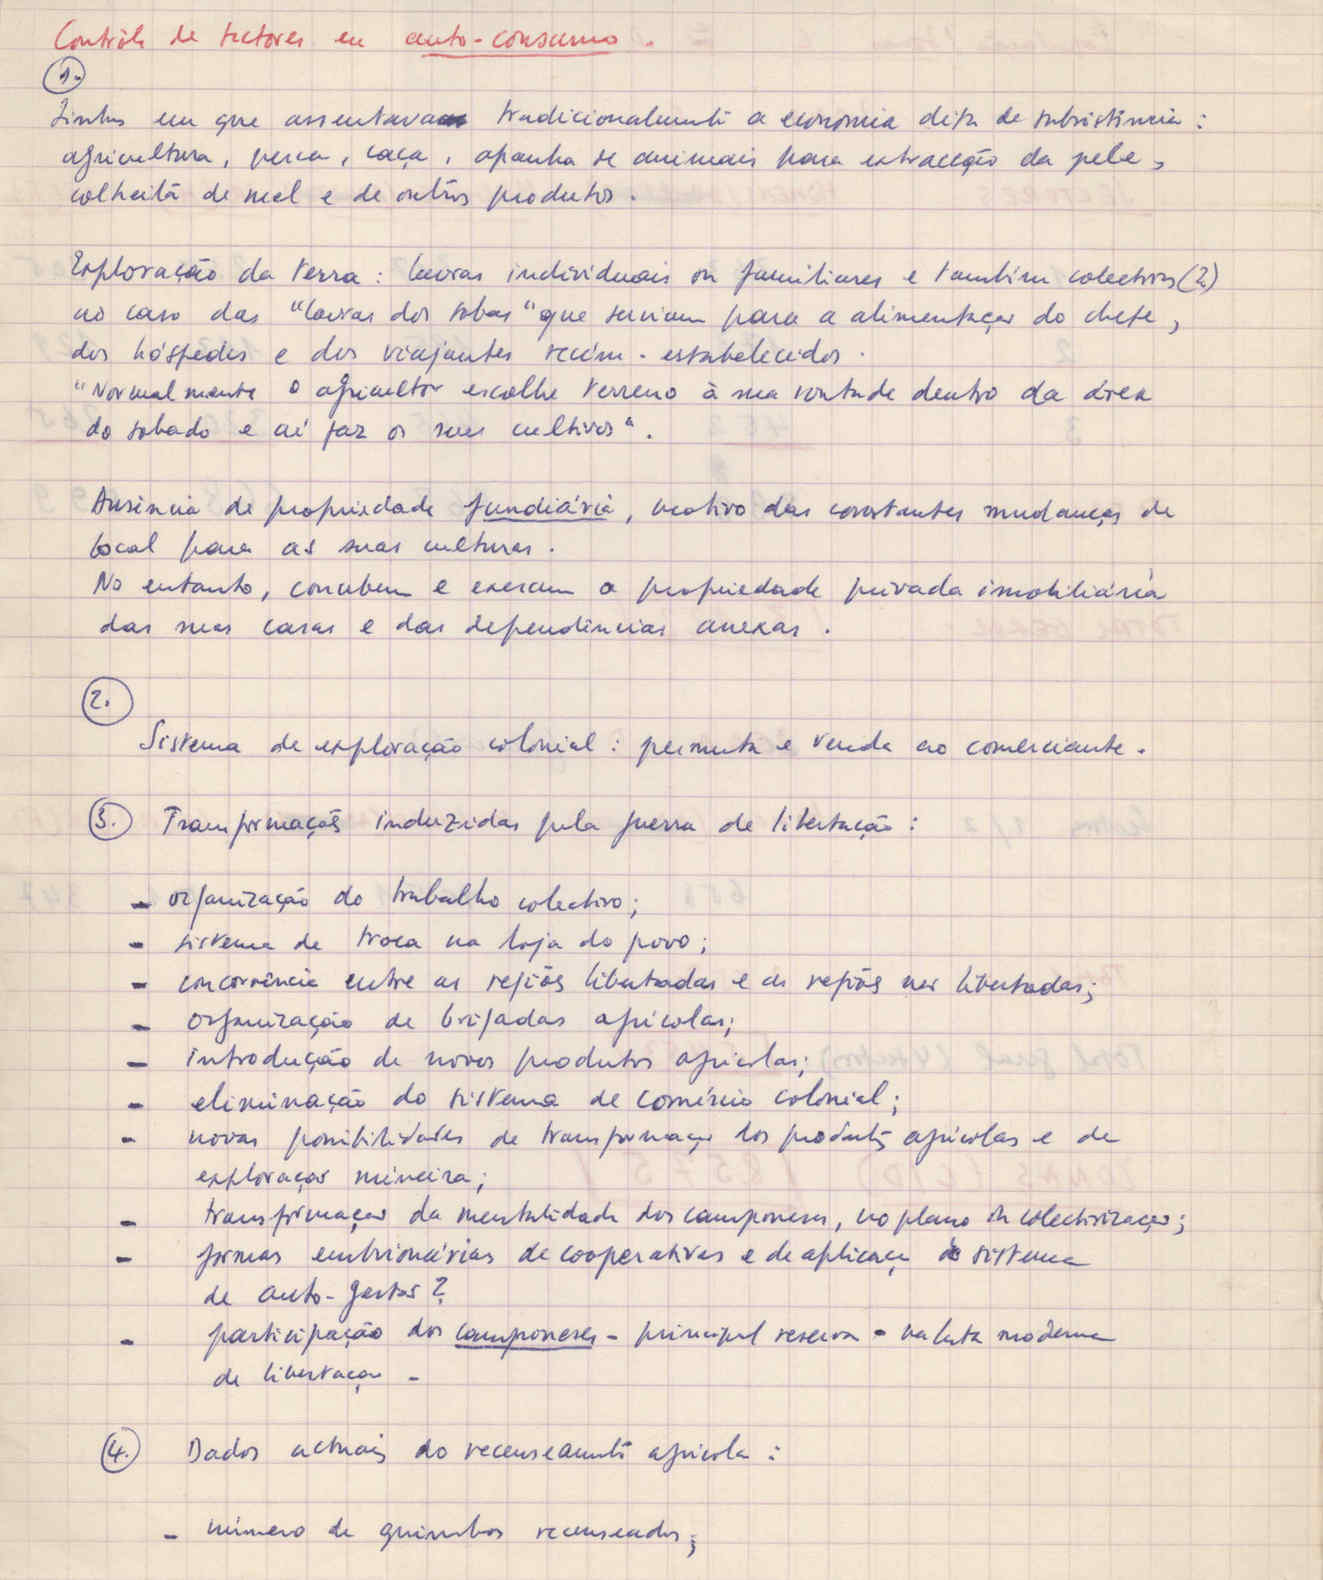 Contrôle de sectores em auto-consumo.
1.
Linhas em que assentava tradicionalmente a economia dita de subsistência:
agricultura, pesca, caça, apanha de animais para extracção da pele,
colheita de mel e de outros produtos.
Exploração da terra: lavras individuais ou familiares e também colectivas (2)
no caso das "lavras dos sobas" que serviam para a alimentação do chefe,
dos hóspedes e dos viajantes recém-estabelecidos.
"Normalmente o agricultor escolhe terreno à sua vontade dentro da área
do sobado e aí faz os seus cultivos".
Ausência de propriedade fundiária, motivo das constantes mudanças de
local para as suas culturas.
No entanto, concebem e exercem a propriedade privada imobiliária
das suas casas e das dependências anexas.
2.
Sistema de exploração colonial: permuta e venda ao comerciante.
3. Transformações induzidas pela guerra de libertação:
- organização do trabalho colectivo;
- sistema de troca na loja do povo;
- concorrência entre as regiões libertadas e as regiões não libertadas;
- organização de brigadas agrícolas;
- introdução de novos produtos agrícolas;
- eliminação do sistema de comércio colonial;
- novas possibilidades de transformação dos produtos agrícolas e de
exploração mineira;
- transformação da mentalidade dos camponeses, no plano da colectivização;
- formas embrionárias de cooperativas e de aplicação do sistema
de auto-gestão?
- participação dos camponeses - principal reserva - na luta moderna
de libertação -
4. Dados actuais do recenseamento agrícola:
- número de quimbos recenseados;